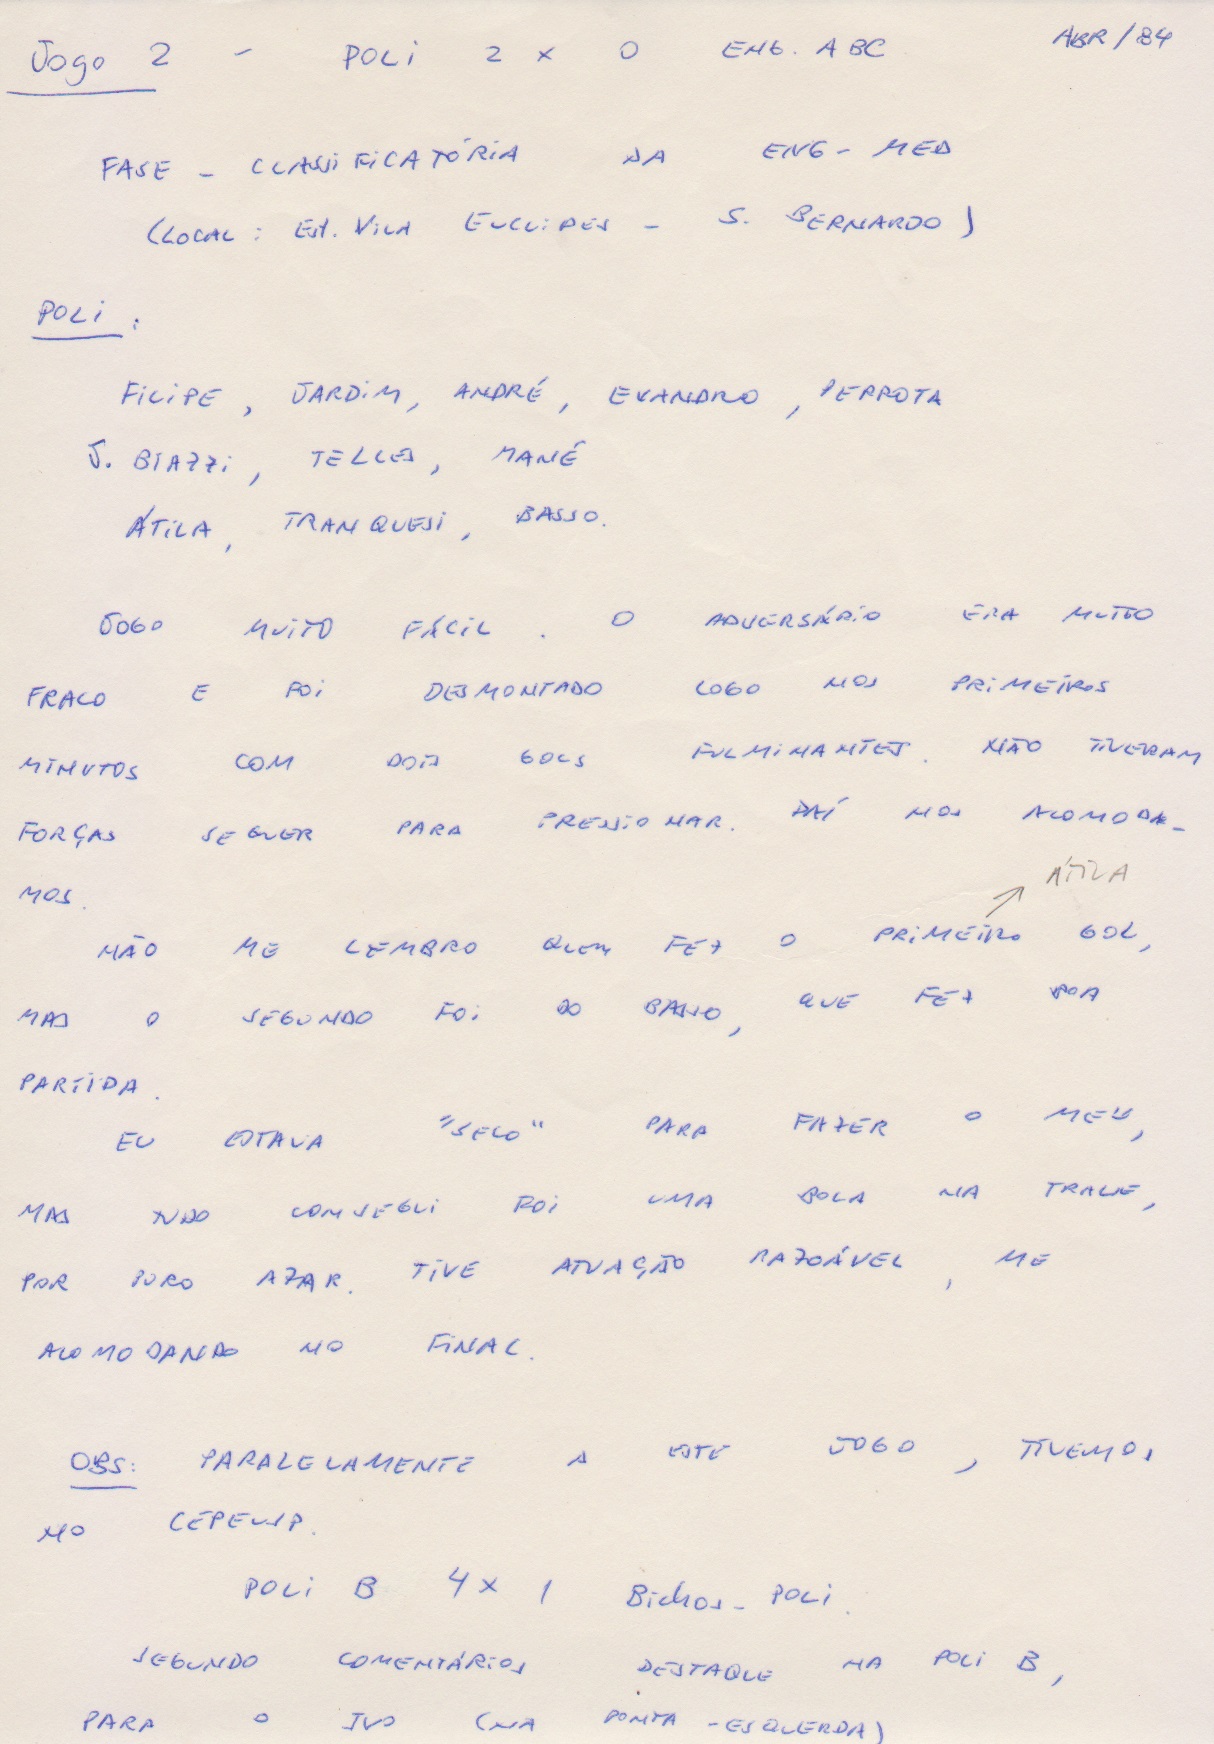 Jogo 2 - POLI 2 x 0 ENG. ABC ABR/84
FASE - CLASSIFICATÓRIA DA ENG-MED
(LOCAL: EST. VILA EUCLIDES - S. BERNARDO)
POLI:
FILIPE, JARDIM, ANDRÉ, EVANDRO, PERROTA
J. BIAZZI, TELLES, MANÉ
ÁTILA, TRANQUESI, BASSO.
JOGO MUITO FÁCIL. O ADVERSÁRIO ERA MUITO
FRACO E FOI DESMONTADO LOGO NOS PRIMEIROS
MINUTOS COM DOIS GOLS FULMINANTES. NÃO TIVERAM
FORÇAS SEQUER PARA PRESSIONAR. DAÍ NOS ACOMODA-
ÁTILA
MOS.
NÃO ME LEMBRO QUEM FEZ O PRIMEIRO GOL,
MAS O SEGUNDO FOI DO BASSO, QUE FEZ BOA
PARTIDA.
EU ESTAVA "SECO" PARA FAZER O MEU,
MAS TUDO CONSEGUI FOI UMA BOLA NA TRAVE,
POR PURO AZAR. TIVE ATUAÇÃO RAZOÁVEL, ME
ACOMODANDO NO FINAL.
OBS: PARALELAMENTE A ESTE JOGO, TIVEMOS
NO CEPEUSP.
POLI B 4 x 1 Bichos - POLI.
SEGUNDO COMENTÁRIOS DESTAQUE NA POLI B,
PARA O IVO (NA PONTA-ESQUERDA)